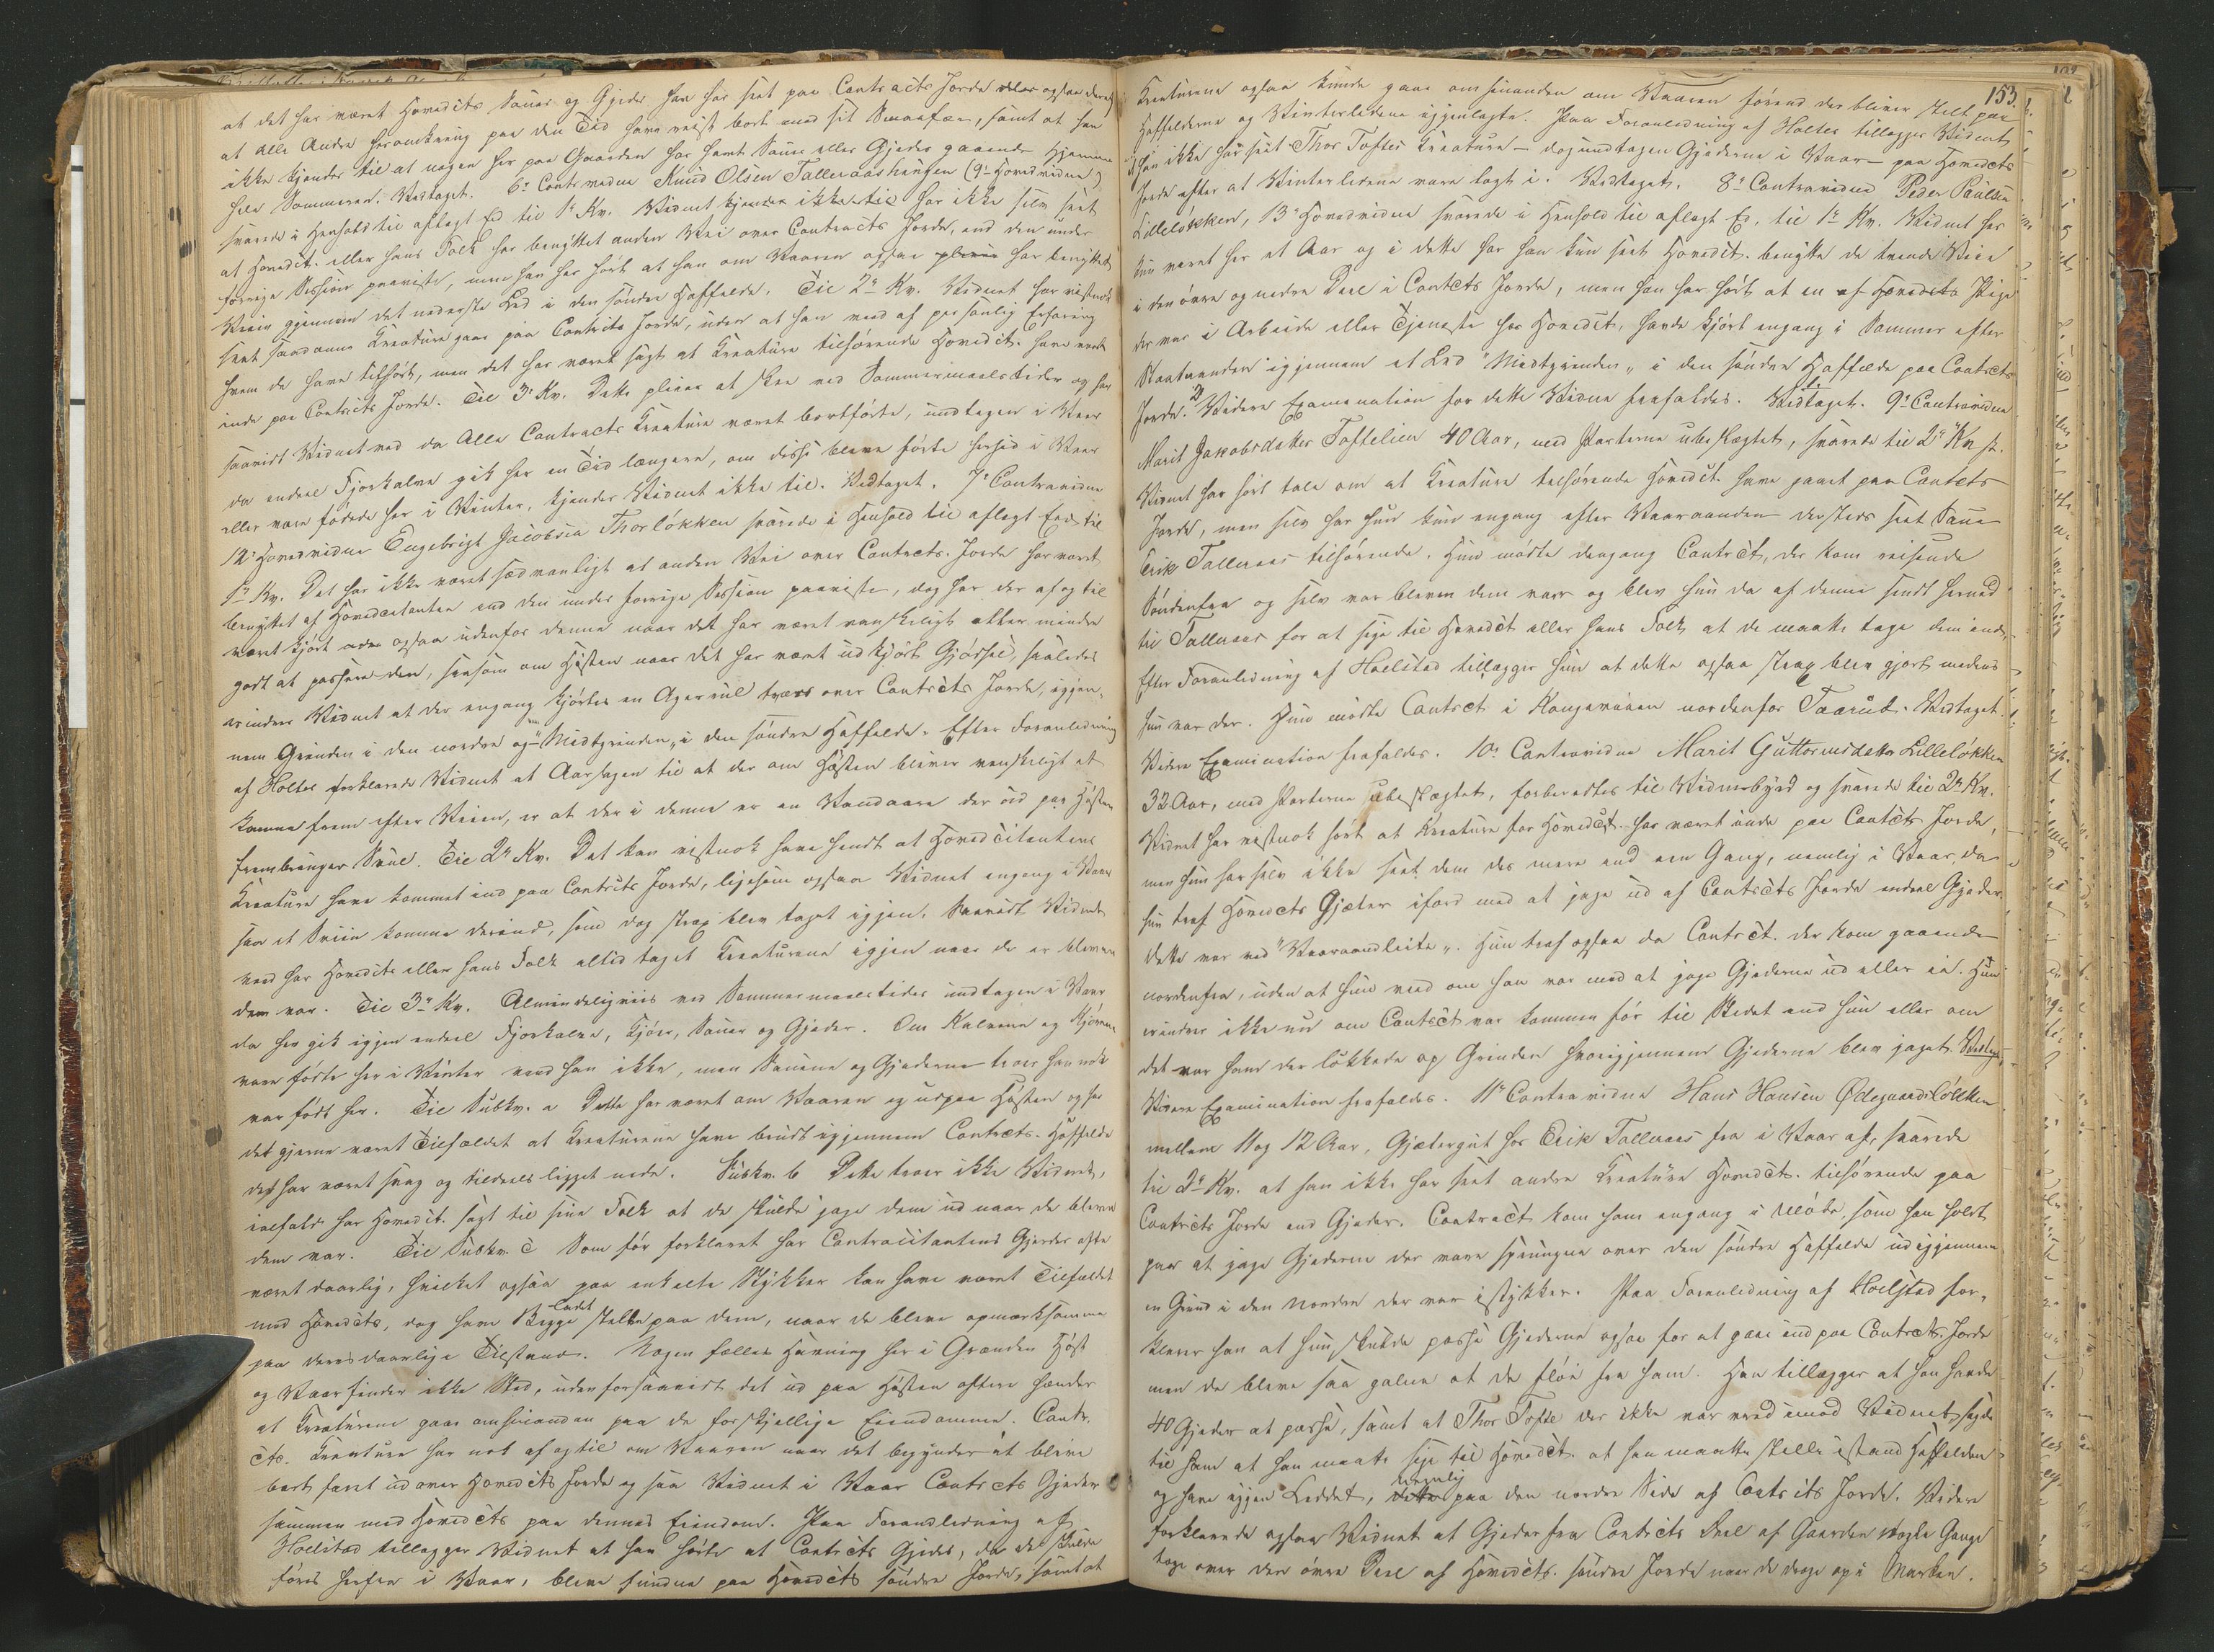 at det har været Hovedcits Sauer og Gjeder han har seet paa Contracits Jorde
at alle Andre heromkring paa den Tid have reist bort med sit Smaafæ, samt at han
ikke kjender til at nogen her paa Gaarden har havt Sauer eller Gjeder gaaende hjemme
hele Sommeren. Vedtaget. 6te Contravidne Knud Olsen Talleraashaugen (9de Hovedvidne)
svarede i Henhold til aflagt Ed til 1te Kv. Vidnet har ikke selv seet
at Hovedcit. eller hans Folk har benyttet anden Vei over Contracits Jorde, end den under
forrige Session paaviste, men han har hørt at han om Vaaren ogsaa har benyttet
Veien gjennem det nederste Led i den søndre Haffælde. Til 2det Kv. Vidnet har vistnok
seet saadanne Kreature gaae paa Contracits Jorde, uden at han veed af personlig Erfaring
hvem de have tilhørt, men det har været sagt at Kreature tilhørende Hovedcit. have været
inde paa Contracits Jorde. Til 3die Kv. Dette pleier at skee ved Sommermaalstider og har
saavidt Vidnet ved da alle Contracits Kreature været bortførte, undtagen i Vaar
da endeel Fjorkalve gik her en Tid længere, om disse bleve førte herhid i Vaar
eller vare fødede her i Vinter, kjender Vidnet ikke til. Vedtaget. 7de Contravidne
12te Hovedvidne Engebrigt Jacobsen Thorløkken svarede i Henhold til aflagt Eed til
1te Kv. Det har ikke været sædvanligt at anden Vei over Contracits. Jorde har været
benyttet af Hovedcitanten end den under forrige Session paaviste, dog har der af og til
været kjørt ogsaa udenfor denne naar det har været vanskeligt eller mindre
godt at passere den, saasom om Høsten naar det har været udkjørt Gjødsel, saaledes
erindrer Vidnet at der engang kjørtes en Ager tværs over Contracits Jorde, igjen-
nem Grinden i den nordre og "Midtgrinden" i den søndre Haffælde. Efter Foranledning
af Holter forklarede Vidnet at Aarsagen til at der om Høsten bliver vanskeligt at
komme frem efter Veien, er at der i denne er en Vandaare der ud paa Høsten
frembringer Svul. Til 2det Kv. Det kan vistnok have hændt at Hovedcitantens
Kreature have kommet ind paa Contracits Jorde, ligesom ogsaa Vidnet engang i Vaar
saa et Sviin komme derind, som dog strax blev taget igjen. Saavidt Vidnet
veed har Hovedcits eller hans Folk altid taget Kreaturene igjen naar de er blevne
dem var. Til 3die Kv. Almindeligviis ved Sommermaalstider undtagen i Vaar
da her gik igjen endeel Fjorkalve, Kjøer, Sauer og Gjeder. Om Kalvene og Kjørene
vare fødte her i Vinter veed han ikke, men Sauene og Gjederne troer han nok
var født her. Til Subkv. a Dette har været om Vaaren og ud paa Høsten og har
det gjerne været Tilfældet at Kreaturene have brudt igjennem Contracts. Haffælde
der har været svag og tildeels ligget nede. Subkv. b Dette troer ikke Vidnet,
ialfald har Hovedcit. sagt til sine Folk at de skulde jage dem ud naar de bleve
dem var. Til Subkv. c Som før forklaret har Contracitantens Gjærder ofte
været daarlig, hvilket ogsaa paa enkelte Stykker kan have været Tilfældet
med Hovedcits, dog have Begge ladet stelle paa dem, naar de bleve opmærksomme
paa deres daarlige Tilstand. Nogen fælles Havning her i Grænden Høst
og Vaar finder ikke Sted, uden forsaavidt det ud paa Høsten oftere hænder
at Kreaturene gaae omhinanden paa de forskjellige Eiendomme. Contr.
cits. Kreature har nok af og til om Vaaren naar det begynder at blive
bart faret ud over Hovedcits Jorde og saa Vidnet i Vaar Contracits Gjeder
sammen med Hovedcits paa dennes Eiendom. Paa Foranledning af
Hoelstad tillægger Vidnet at han hørte at Contracits Gjeder, da de skulde
føres herfra i Vaar, bleve fundne paa Hovedcits søndre Jorde, samt at
153.
Kreaturene ogsaa kunde gaae omhinanden om Vaaren førend der bliver stelt paa
Haffælderne og Vinterledene igjenlagte. Paa Foranledning af Holter tillægger Vidnet
at han ikke har seet Thor Toftes Kreature – dog undtagen Gjederne i Vaar – paa Hovedcits
Jorde efter at Vinterledene vare lagt i. Vedtaget. 8de Contravidne Peder Paulsen
Lilleløkken, 13de Hovedvidne svarede i Henhold til aflagt Ed. til 1te Kv. Vidnet har
kun været her et Aar og i dette har han kun seet Hovedcit. benytte de tvende Veie
i den øvre og nedre Deel i Contcts Jorde, men han har hørt at en Pige
der var i Arbeide eller Tjeneste hos Hovedcit, havde kjørt engang i Sommer efter
Vaaraanden igjennem et Led "Midtgrinden" i den søndre Haffælde paa Contrcts
Jorde. Videre Examination for dette Vidne frafaldes. Vedtaget. 9de Contravidne
Marit Jakobsdatter Toftelien 40 Aar, med Parterne ubeslægtet, svarede til 2det Kv.
Vidnet har hørt tale om at Kreature tilhørende Hovedcit. have gaaet paa Contcts
Jorde, men selv har hun kun engang efter Vaaraanden dersteds seet Sauer
Erik Talleraas tilhørende. Hun mødte dengang Contrcit, der kom reisende
Søndenfra og selv var bleven dem var og blev hun da af denne sendt herned
til Talleraas for at sige til Hovedcit eller hans Folk, at de maatte tage dem ind.
Efter Foranledning af Hoelstad tillægger hun at dette ogsaa strax blev gjort medens
hun var der. Hun mødte Contrct i Kongeveien nordenfor Taarud. Vedtaget.
Videre Examination frafaldes. 10de Contravidne Marit Guttormsdatter Lilleløkken
32 Aar, med Parterne ubeslægtet, forberedtes til Vidnesbyrd og svarede til 2det Kv.
Vidnet har vistnok hørt at Kreature for Hovedcit. har været inde paa Contcts Jorde,
men hun har selv ikke seet dem der mere end een Gang, nemlig i Vaar, da
hun traf Hovedcts Gjæter ifærd med at jage ud af Contrcits Jorde endeel Gjeder,
dette var ved "Vaaraandleite". Hun traf ogsaa da Contrcit. der kom gaaende
nordenfra, uden at hun veed om han var med at jage Gjederne ud eller ei. Hun
erindrer ikke nu om Contrct var kommen før til Stedet end hun eller om
det var ham der lukkede op Grinden hvorigjennem Gjederne blev jaget. Vedtaget.
Videre Examination frafaldes. 11te Contravidne Hans Hansen Ødegaardsløkken
mellem 11 og 12 Aar, Gjætergut hos Erik Talleraas fra i Vaar af, svarede
til 2det Kv. at han ikke har seet andre Kreature Hovedcit. tilhørende paa
Contrcits Jorde end Gjeder. Contracit kom ham engang i Møde, som han holdt
paa at jage Gjederne der vare sprungne over den søndre Haffælde ud igjennem
en Grind i den Nordre der var istykker. Paa Foranledning af Hoelstad for-
klarer han at hun skulde passe Gjederne ogsaa for at gaae ind paa Contrcts. Jorde
men de bleve saa galne at de fløi fra ham. Han tillægger at han havde
40 Gjeder at passe, samt at Thor Tofte der ikke var vred imod Vidnet, sagde
til ham at han maatte sige til Hovedcit at han maatte stelle istand Haffælden
og have igjen Leddet, nemlig paa den nordre Side af Contrcits Jorde. Videre
forklarede ogsaa Vidnet at Gjeder fra Contrcits Deel af Gaarden nogle Gange
toge over den øvre Deel af Hovedcits. søndre Jorde naar de droge op i Marken.